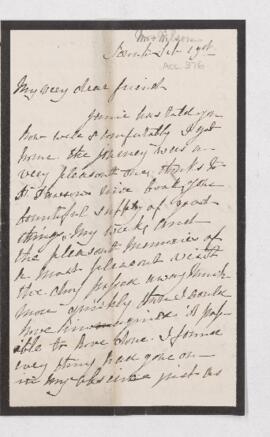 Mrs Wilson
Sept 1st 1908
ACC 376
My very dear friend
Jamie has told you
how well & comfortably I got
home the journey was a
very pleasant one, thanks to
nice book, your
bountiful supply of good
things, my week, and
the pleasant memories of
a most pleasant visit
the day passed away much
more quickly than I could
have imagined it poss
ible to have done. I found
every thing had gone on
in my absence just as